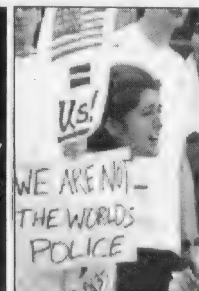 =
Us!
WE ARE NOT
THE WORLDS
POLICE